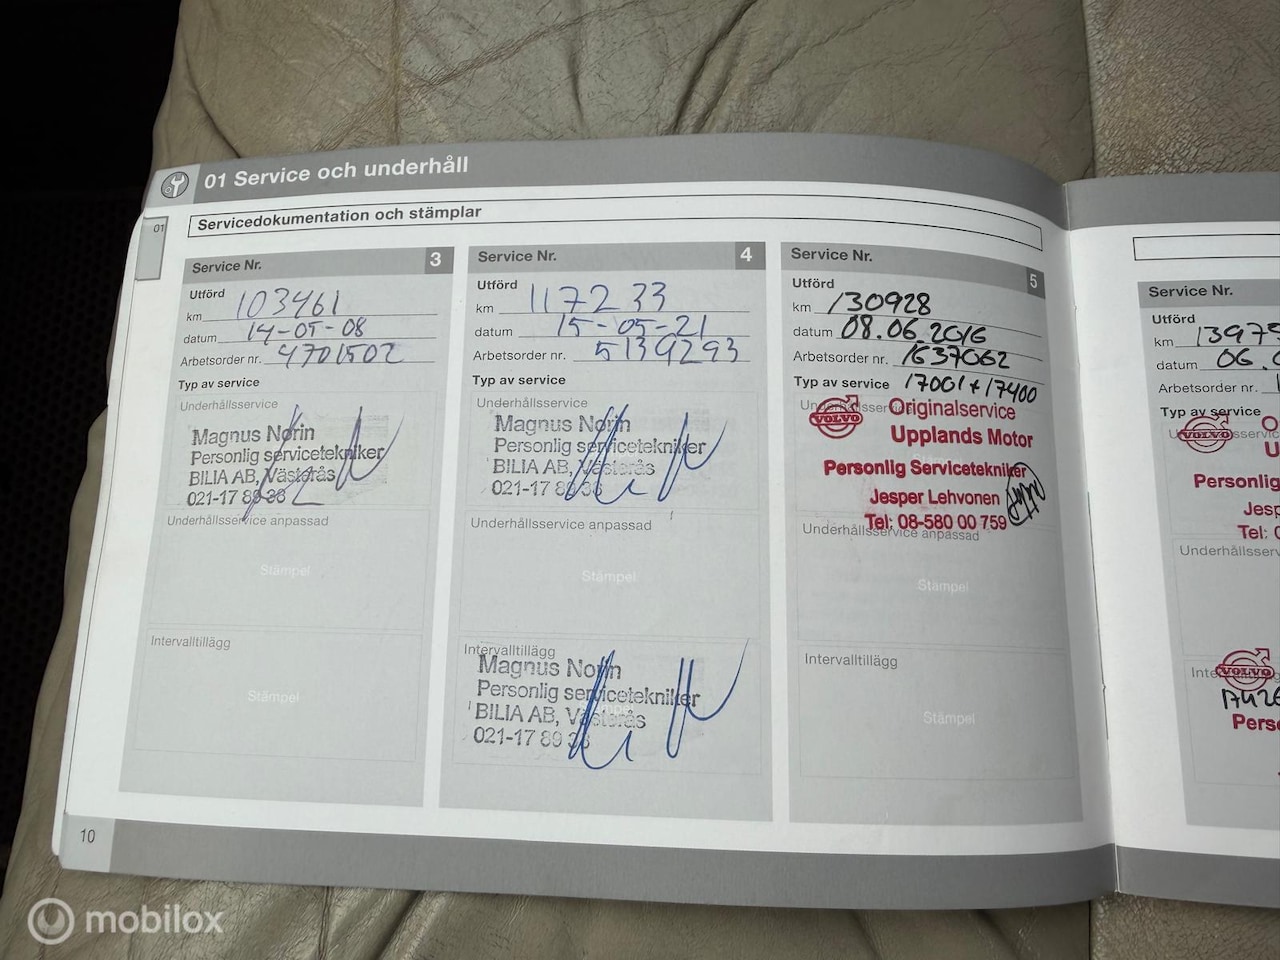 01 Service och underhåll
01
Servicedokumentation och stämplar
Service Nr. 3
Utförd
km 103461
datum 14-05-08
Arbetsorder nr. 4701502
Typ av service
Underhållsservice
Magnus Norin
Personlig servicetekniker
BILIA AB, Västerås
021-17 89 38
Underhållsservice anpassad
Stämpel
Intervalltillägg
Stämpel
Service Nr. 4
Utförd
km 117233
datum 15-05-21
Arbetsorder nr. 5139293
Typ av service
Underhållsservice
Magnus Norin
Personlig servicetekniker
BILIA AB, Västerås
021-17 89 38
Underhållsservice anpassad
Stämpel
Intervalltillägg
Magnus Norin
Personlig servicetekniker
BILIA AB, Västerås
021-17 89 38
Service Nr. 5
Utförd
km 130928
datum 08.06.2016
Arbetsorder nr. 1637062
Typ av service 17001+17400
Underhållsservice
VOLVO
Originalservice
Upplands Motor
Personlig Servicetekniker
Jesper Lehvonen
Tel: 08-580 00 759
Underhållsservice anpassad
Stämpel
Intervalltillägg
Stämpel
Service Nr.
Utförd
km 13975
datum 06.
Arbetsorder nr.
Typ av service
VOLVO
O
U
Personlig
Jesp
Tel: 0
Underhållsserv
Inte
VOLVO
1742
Perso
10
mobilox